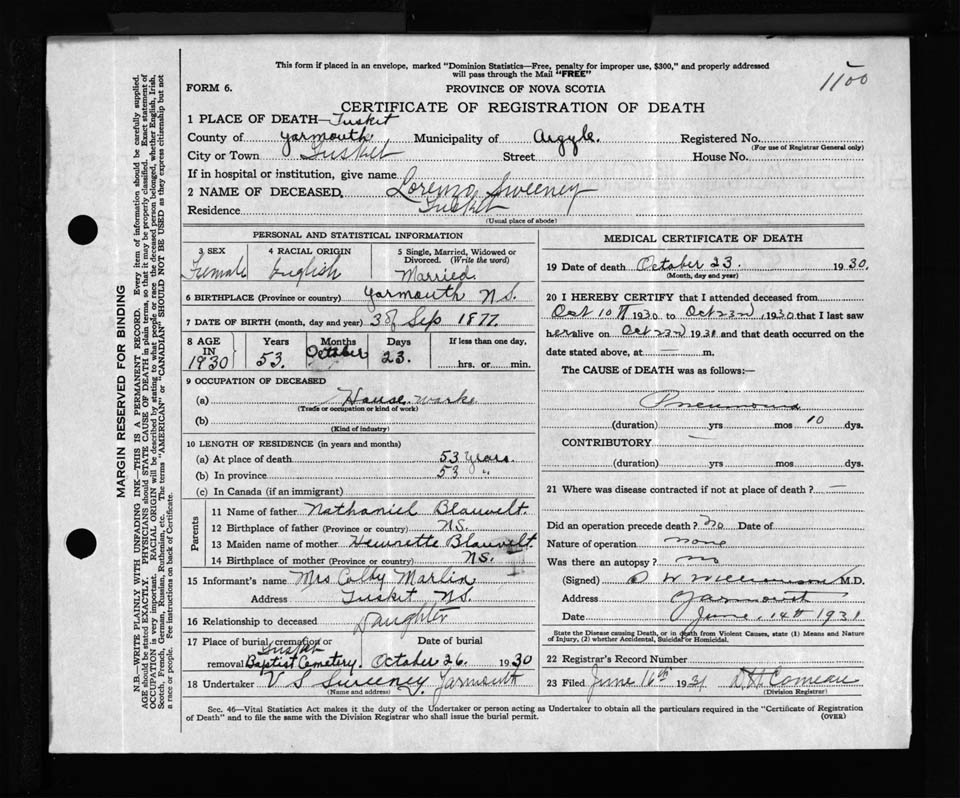 This form if placed in an envelope, marked "Dominion Statistics—Free, penalty for improper use, $300," and properly addressed
will pass through the Mail "FREE"
1100
FORM 6.
PROVINCE OF NOVA SCOTIA
CERTIFICATE OF REGISTRATION OF DEATH
1 PLACE OF DEATH— Tusket
County of Yarmouth. Municipality of Argyle. Registered No.
(For use of Registrar General only)
City or Town Tusket Street House No.
If in hospital or institution, give name
2 NAME OF DECEASED. Lorenzo Sweeney
Residence Tusket
(Usual place of abode)
PERSONAL AND STATISTICAL INFORMATION
3 SEX 4 RACIAL ORIGIN 5 Single, Married, Widowed or
Divorced. (Write the word)
Female English Married.
6 BIRTHPLACE (Province or country) Yarmouth N.S.
7 DATE OF BIRTH (month, day and year) 3 of Sep 1877.
8 AGE Years Months Days If less than one day,
IN
1930 53. October 23. hrs. or min.
9 OCCUPATION OF DECEASED
(a) House works
(Trade or occupation or kind of work)
(b)
(Kind of industry)
10 LENGTH OF RESIDENCE (in years and months)
(a) At place of death 53 years.
(b) In province 53 "
(c) In Canada (if an immigrant)
Parents
11 Name of father Nathaniel Blauvelt.
12 Birthplace of father (Province or country) N.S.
13 Maiden name of mother Henrette Blauvelt.
14 Birthplace of mother (Province or country) N.S.
15 Informant's name Mrs Colby Marlin
Address Tuskit N.S.
16 Relationship to deceased Daughter
17 Place of burial, cremation or Date of burial
Tusket
removal Baptist Cemetery. October 26. 1930
18 Undertaker V S Sweeney, Yarmouth
(Name and address)
MEDICAL CERTIFICATE OF DEATH
19 Date of death October 23. 1930.
(Month, day and year)
20 I HEREBY CERTIFY that I attended deceased from
Oct 10th 1930 to Oct 23rd, 1930 that I last saw
her alive on Oct 23rd 1930 and that death occurred on the
date stated above, at — m.
The CAUSE of DEATH was as follows:—
Pneumonia
(duration) yrs mos 10 dys.
CONTRIBUTORY —
(duration) yrs mos dys.
21 Where was disease contracted if not at place of death? —
Did an operation precede death? No Date of
Nature of operation none
Was there an autopsy? no
(Signed) M.D.
Address Yarmouth
Date June 14th 1931
State the Disease causing Death, or in death from Violent Causes, state (1) Means and Nature
of Injury, (2) whether Accidental, Suicidal or Homicidal.
22 Registrar's Record Number
23 Filed June 16th 1931 Comeau
(Division Registrar)
Sec. 46—Vital Statistics Act makes it the duty of the Undertaker or person acting as Undertaker to obtain all the particulars required in the "Certificate of Registration
of Death" and to file the same with the Division Registrar who shall issue the burial permit. (OVER)
MARGIN RESERVED FOR BINDING
N.B.—WRITE PLAINLY WITH UNFADING INK—THIS IS A PERMANENT RECORD. Every item of information should be carefully supplied.
AGE should be stated EXACTLY. PHYSICIANS should STATE CAUSE OF DEATH in plain terms, so that it may be properly classified. Exact statement of
OCCUPATION is very important. RACIAL ORIGIN will be described by stating to what people or race the deceased person belonged, whether English, Irish,
Scotch, French, German, Russian, Ruthenian, etc. The terms "AMERICAN" or "CANADIAN" SHOULD NOT BE USED as they express citizenship but not
a race or people. Fee instructions on back of Certificate.